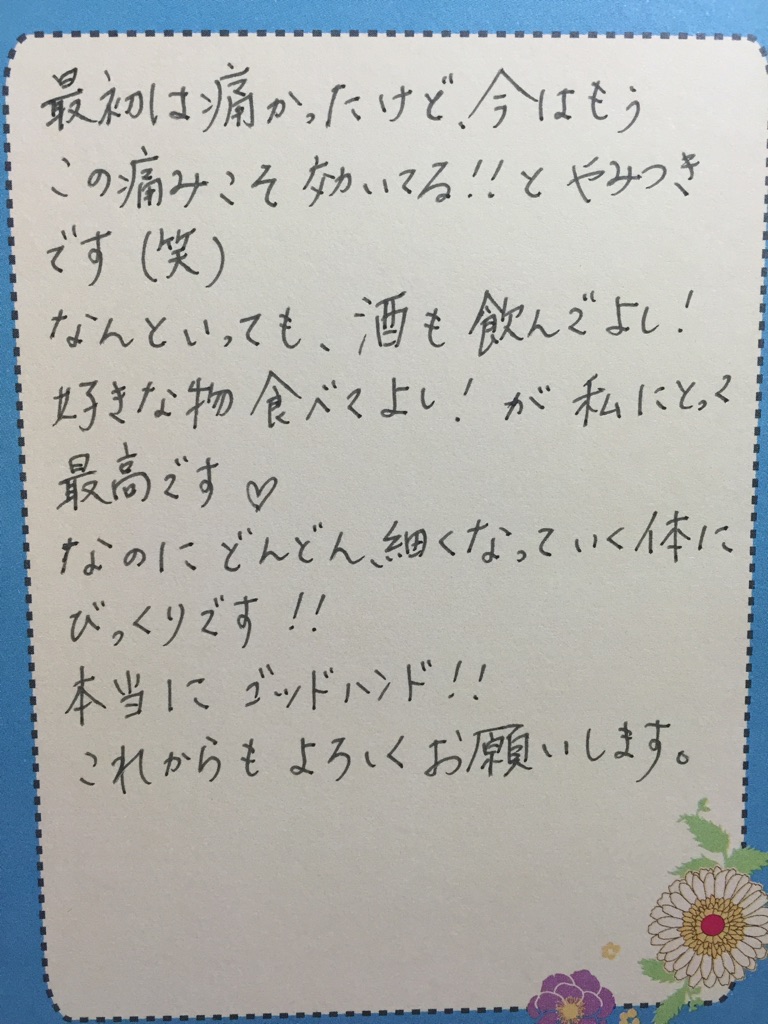 最初は痛かったけど、今はもう
この痛みこそ効いてる!!とやみつき
です(笑)
なんといっても、酒も飲んでよし!
好きな物食べてよし!が私にとって
最高です♡
なのにどんどん、細くなっていく体に
びっくりです!!
本当にゴッドハンド!!
これからもよろしくお願いします。